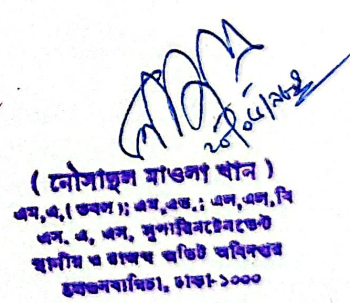 ( নোসাহুল মাওলা খান )
এম,এ,(ডবল); এম,এড.; এল,এল,বি
এস. এ, এস, সুপারিনটেনডেন্ট
স্থানীয় ও রাজস্ব অডিট অধিদপ্তর
সেগুনবাগিচা, ঢাকা-১০০০